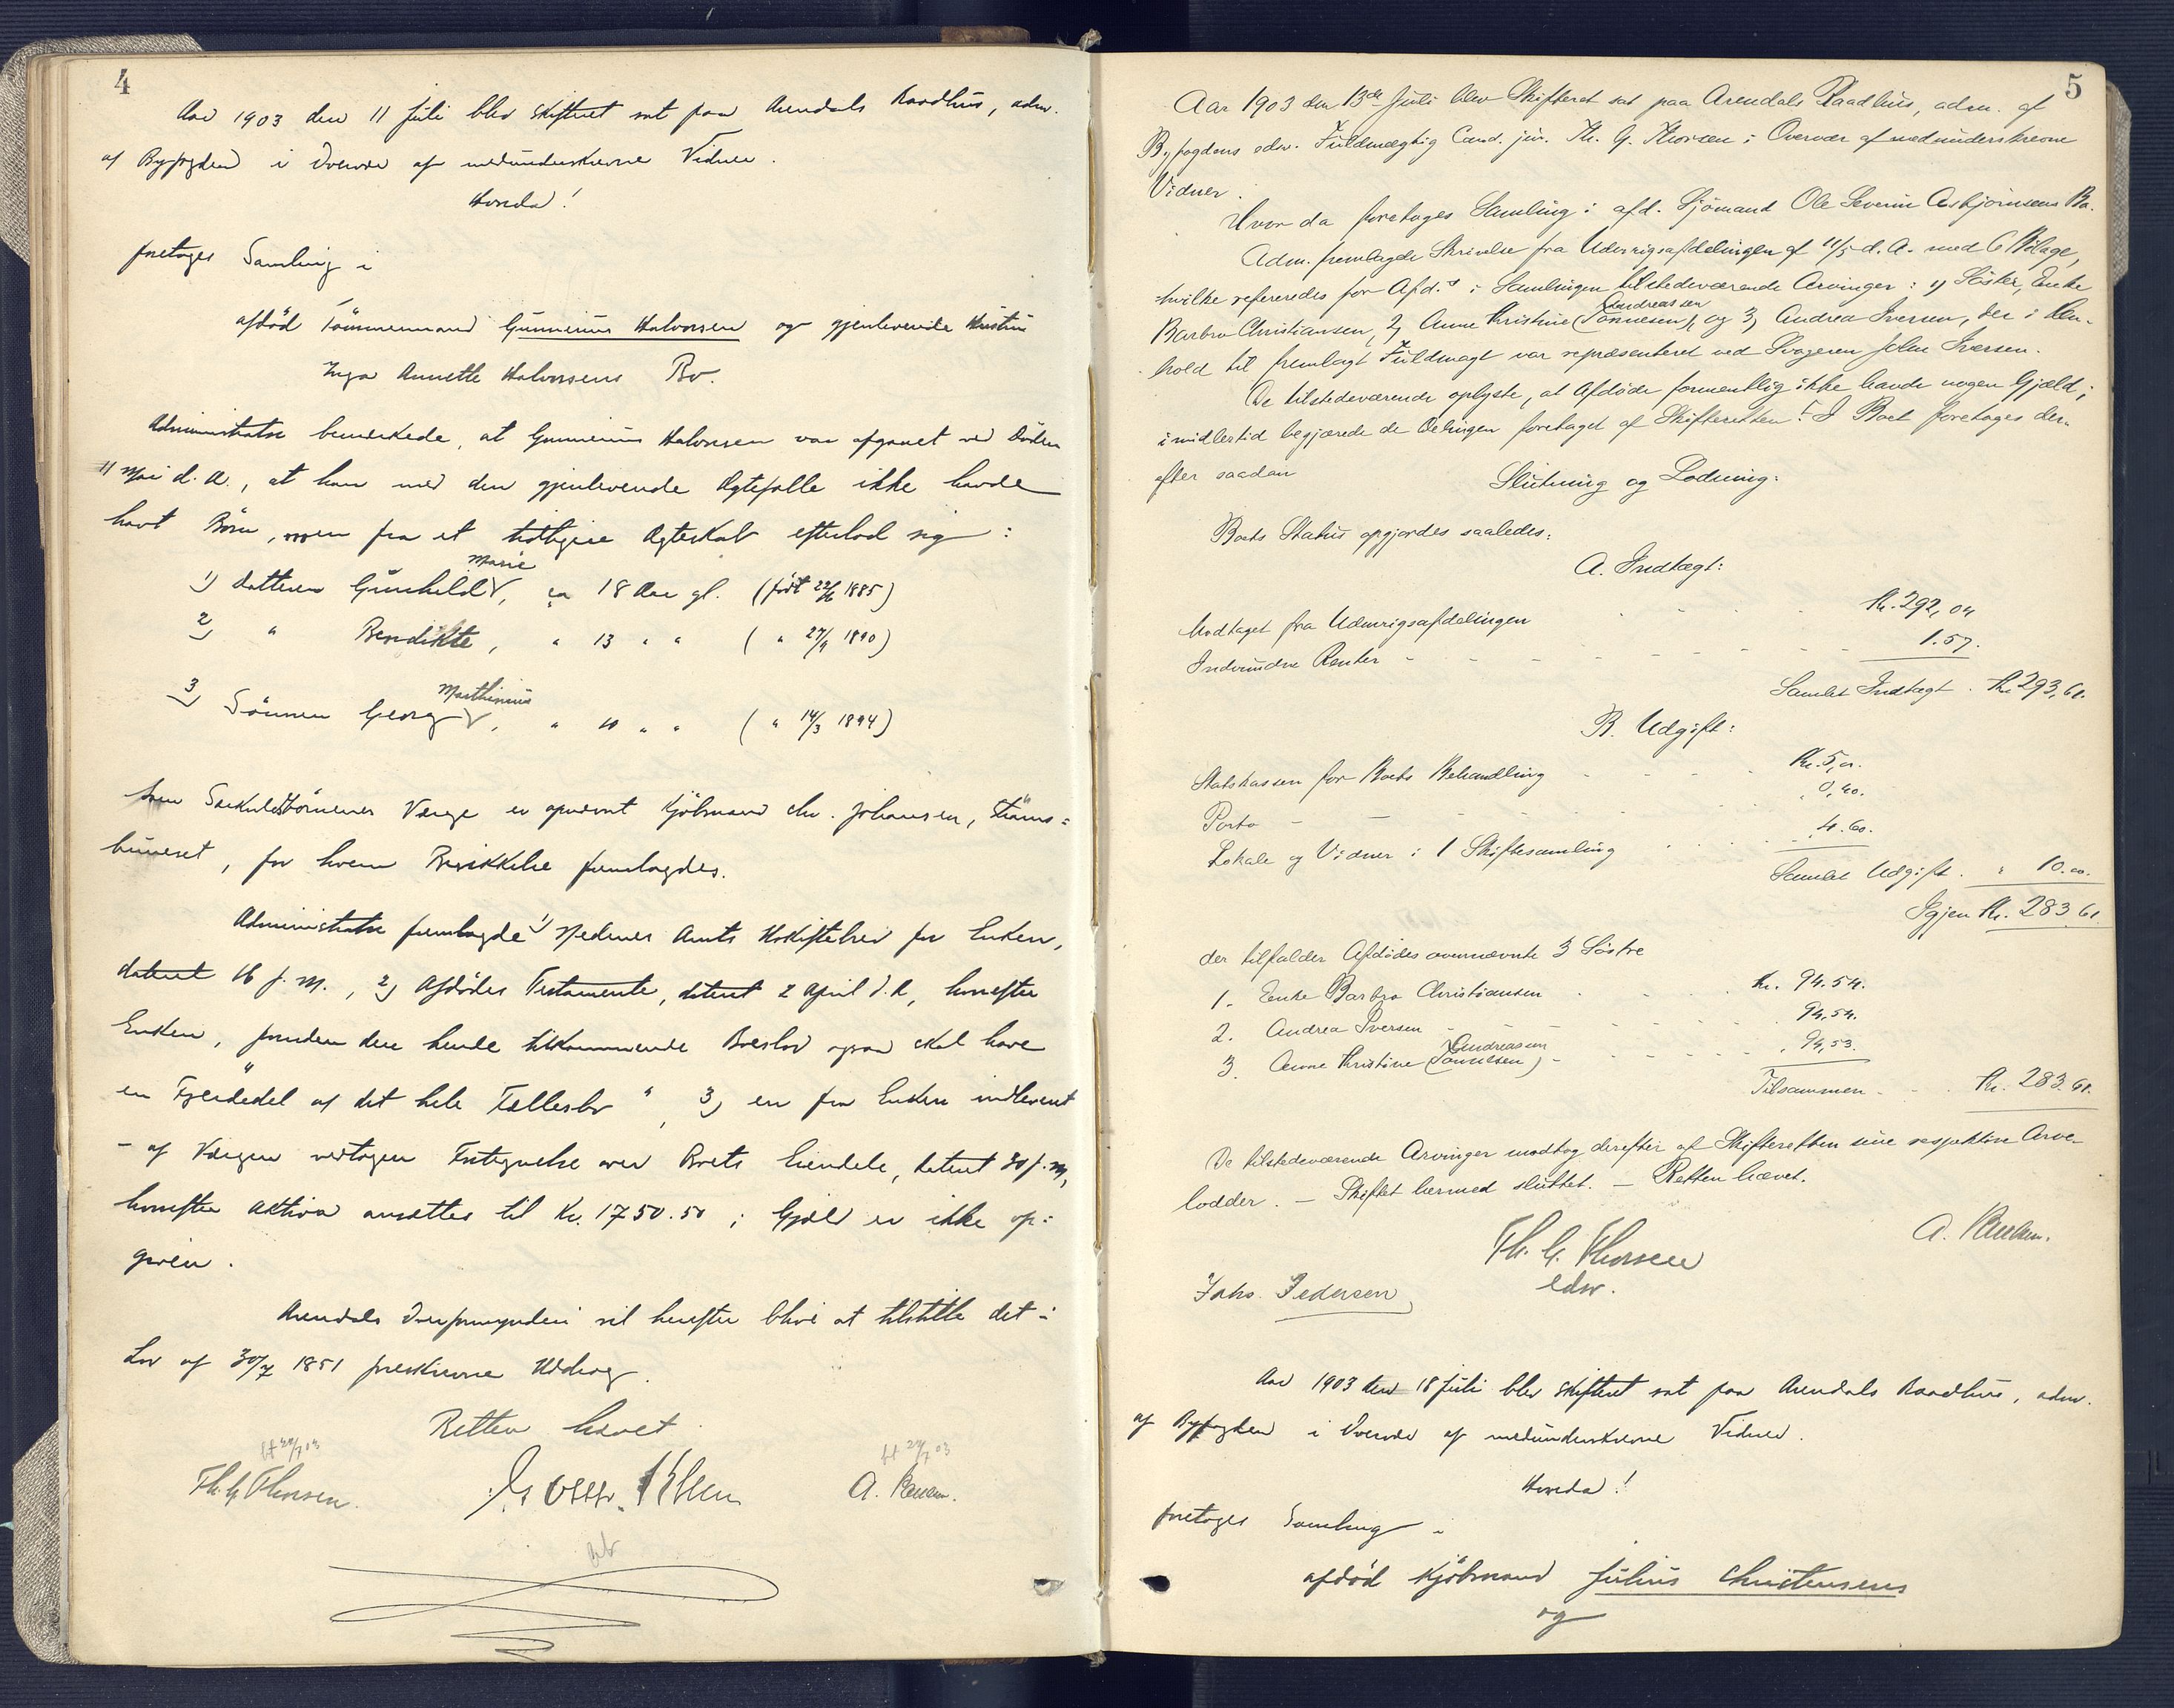 4
Aar 1903 den 11 Juli blev Skifteret sat paa Arendals Raadhus, adm.
af Byfogden i Overvær af medunderskrevne Vidner.
Hvorda!
foretoges Samling i
afdød Tømmermand Gunnerius Halvorsen og gjenlevende Hustru
Inga Annette Halvorsens Bo.
Administrator bemærkede, at Gunnerius Halvorsen var afgaaet ved Døden
11 Mai d. A., at han med den gjenlevende Ægtefælle ikke havde
havt Børn, men fra et tidligere Ægteskab efterlod sig:
Marie
1) Datteren Gunhild, ca 18 Aar gl. (født 22/6 1885)
2) " Bendikte, " 13 " " ( " 27/9 1890)
Marthinius
3) Sønnen Georg, " 10 " " ( " 14/3 1894)
Som Særkuldbørnenes Værge er opnævnt Kjøbmand Chr. Johansen, Strøms=
buneset, for hvem Beskikkelse fremlagdes.
Administrator fremlagde 1) Nedenes Amts Uskiftebrev for Enken,
dateret 16 f. M., 2) Afdødes Testamente, dateret 2 April d. A., hvorefter
Enken, foruden den hende tilkommende Boeslod ogsaa skal have
"en Fjerdedel af det hele Fællesbo", 3) en fra Enken indleveret
- af Værgen vedtagen Fortegnelse over Boets Eiendele, dateret 30 f. M.,
hvorefter Aktiva ansættes til Kr. 1750.50; Gjæld er ikke op=
given.
Arendals Overformynderi vil herefter blive at tilstille det i
Lov af 30/7 1851 foreskrevne Uddrag.
Retten hævet.
Th. G. Thorsen.
A. Paulsen.
5
Aar 1903 den 13de Juli blev Skifteret sat paa Arendals Raadhus, adm. af
Byfogdens edsv. Fuldmægtig Cand. jur. Th. G. Thorsen i Overvær af medunderskrevne
Vidner.
Hvor da foretoges Samling i afd. Sjømand Ole Severin Asbjørnsens Bo.
Adm. fremlagde Skrivelse fra Udenrigsafdelingen af 11/5 d. A. med 6 Bilage,
hvilke refereredes for Afd.s i Samlingen tilstedeværende Arvinger: 1) Søster, Enke
Andreassen
Barbro Christiansen, 2) Anne Kristine (Tønnesen), og 3) Andrea Iversen, der i Hen-
hold til fremlagt Fuldmagt var repræsenteret ved Svogeren John Iversen.
De tilstedeværende oplyste, at Afdøde formentlig ikke havde nogen Gjæld;
imidlertid begjærede de Delingen foretaget af Skifteretten. I Boet foretoges der-
efter saadan
Slutning og Lodning:
Boets Status opgjordes saaledes:
A. Indtægt:
Modtaget fra Udenrigsafdelingen Kr. 292,04
Indvundne Renter - 1.57.
Samlet Indtægt. Kr. 293,61.
B. Udgift:
Statskassen for Boets Behandling Kr. 5,00.
Porto - 0,40.
Lokale og Vidner i 1 Skiftesamling 4.60.
Samlet Udgift. " 10.00.
Igjen Kr. 283.61.
der tilfalder Afdødes ovennævnte 3 Søstre
1. Enke Barbro Christiansen Kr. 94.54.
2. Andrea Iversen 94,54.
Andreassen
3. Anne Kristine (Tønnesen) - 94,53.
Tilsammen - Kr. 283.61.
De tilstedeværende Arvinger modtog derefter af Skifteretten sine respektive Arve-
lodder. - Skiftet hermed sluttet. - Retten hævet.
Th. G. Thorsen
edsv.
A. Paulsen.
Johs. Pedersen
Aar 1903 den 18 Juli blev Skifteret sat paa Arendals Raadhus, adm.
af Byfogden i Overvær af medunderskrevne Vidner.
Hvorda!
foretoges Samling i
afdød Kjøbmand Julius Christensens
og